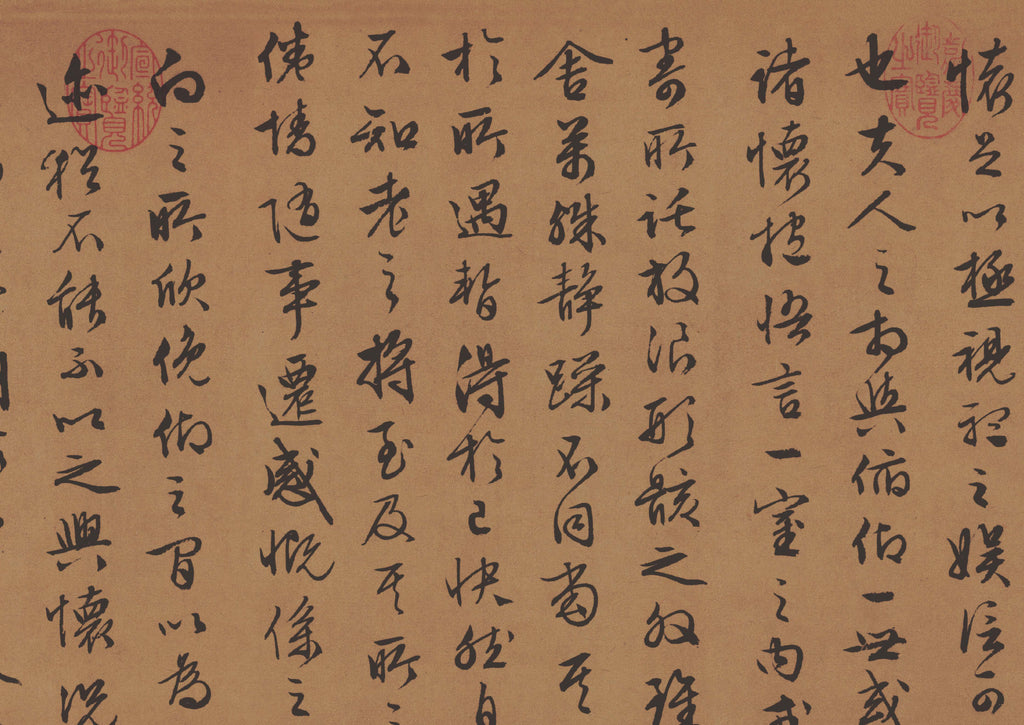 懷足以極視聽之娛信可
也夫人之相與俯仰一世或
諸懷抱悟言一室之內或
寄所託放浪形骸之外雖
舍萬殊靜躁不同當其
於所遇暫得於己快然自
不知老之將至及其所之
倦情隨事遷感慨係之
向之所欣俛仰之間以為
迹猶不能不以之興懷況
嘉慶御覽之寶
宣統御覽之寶